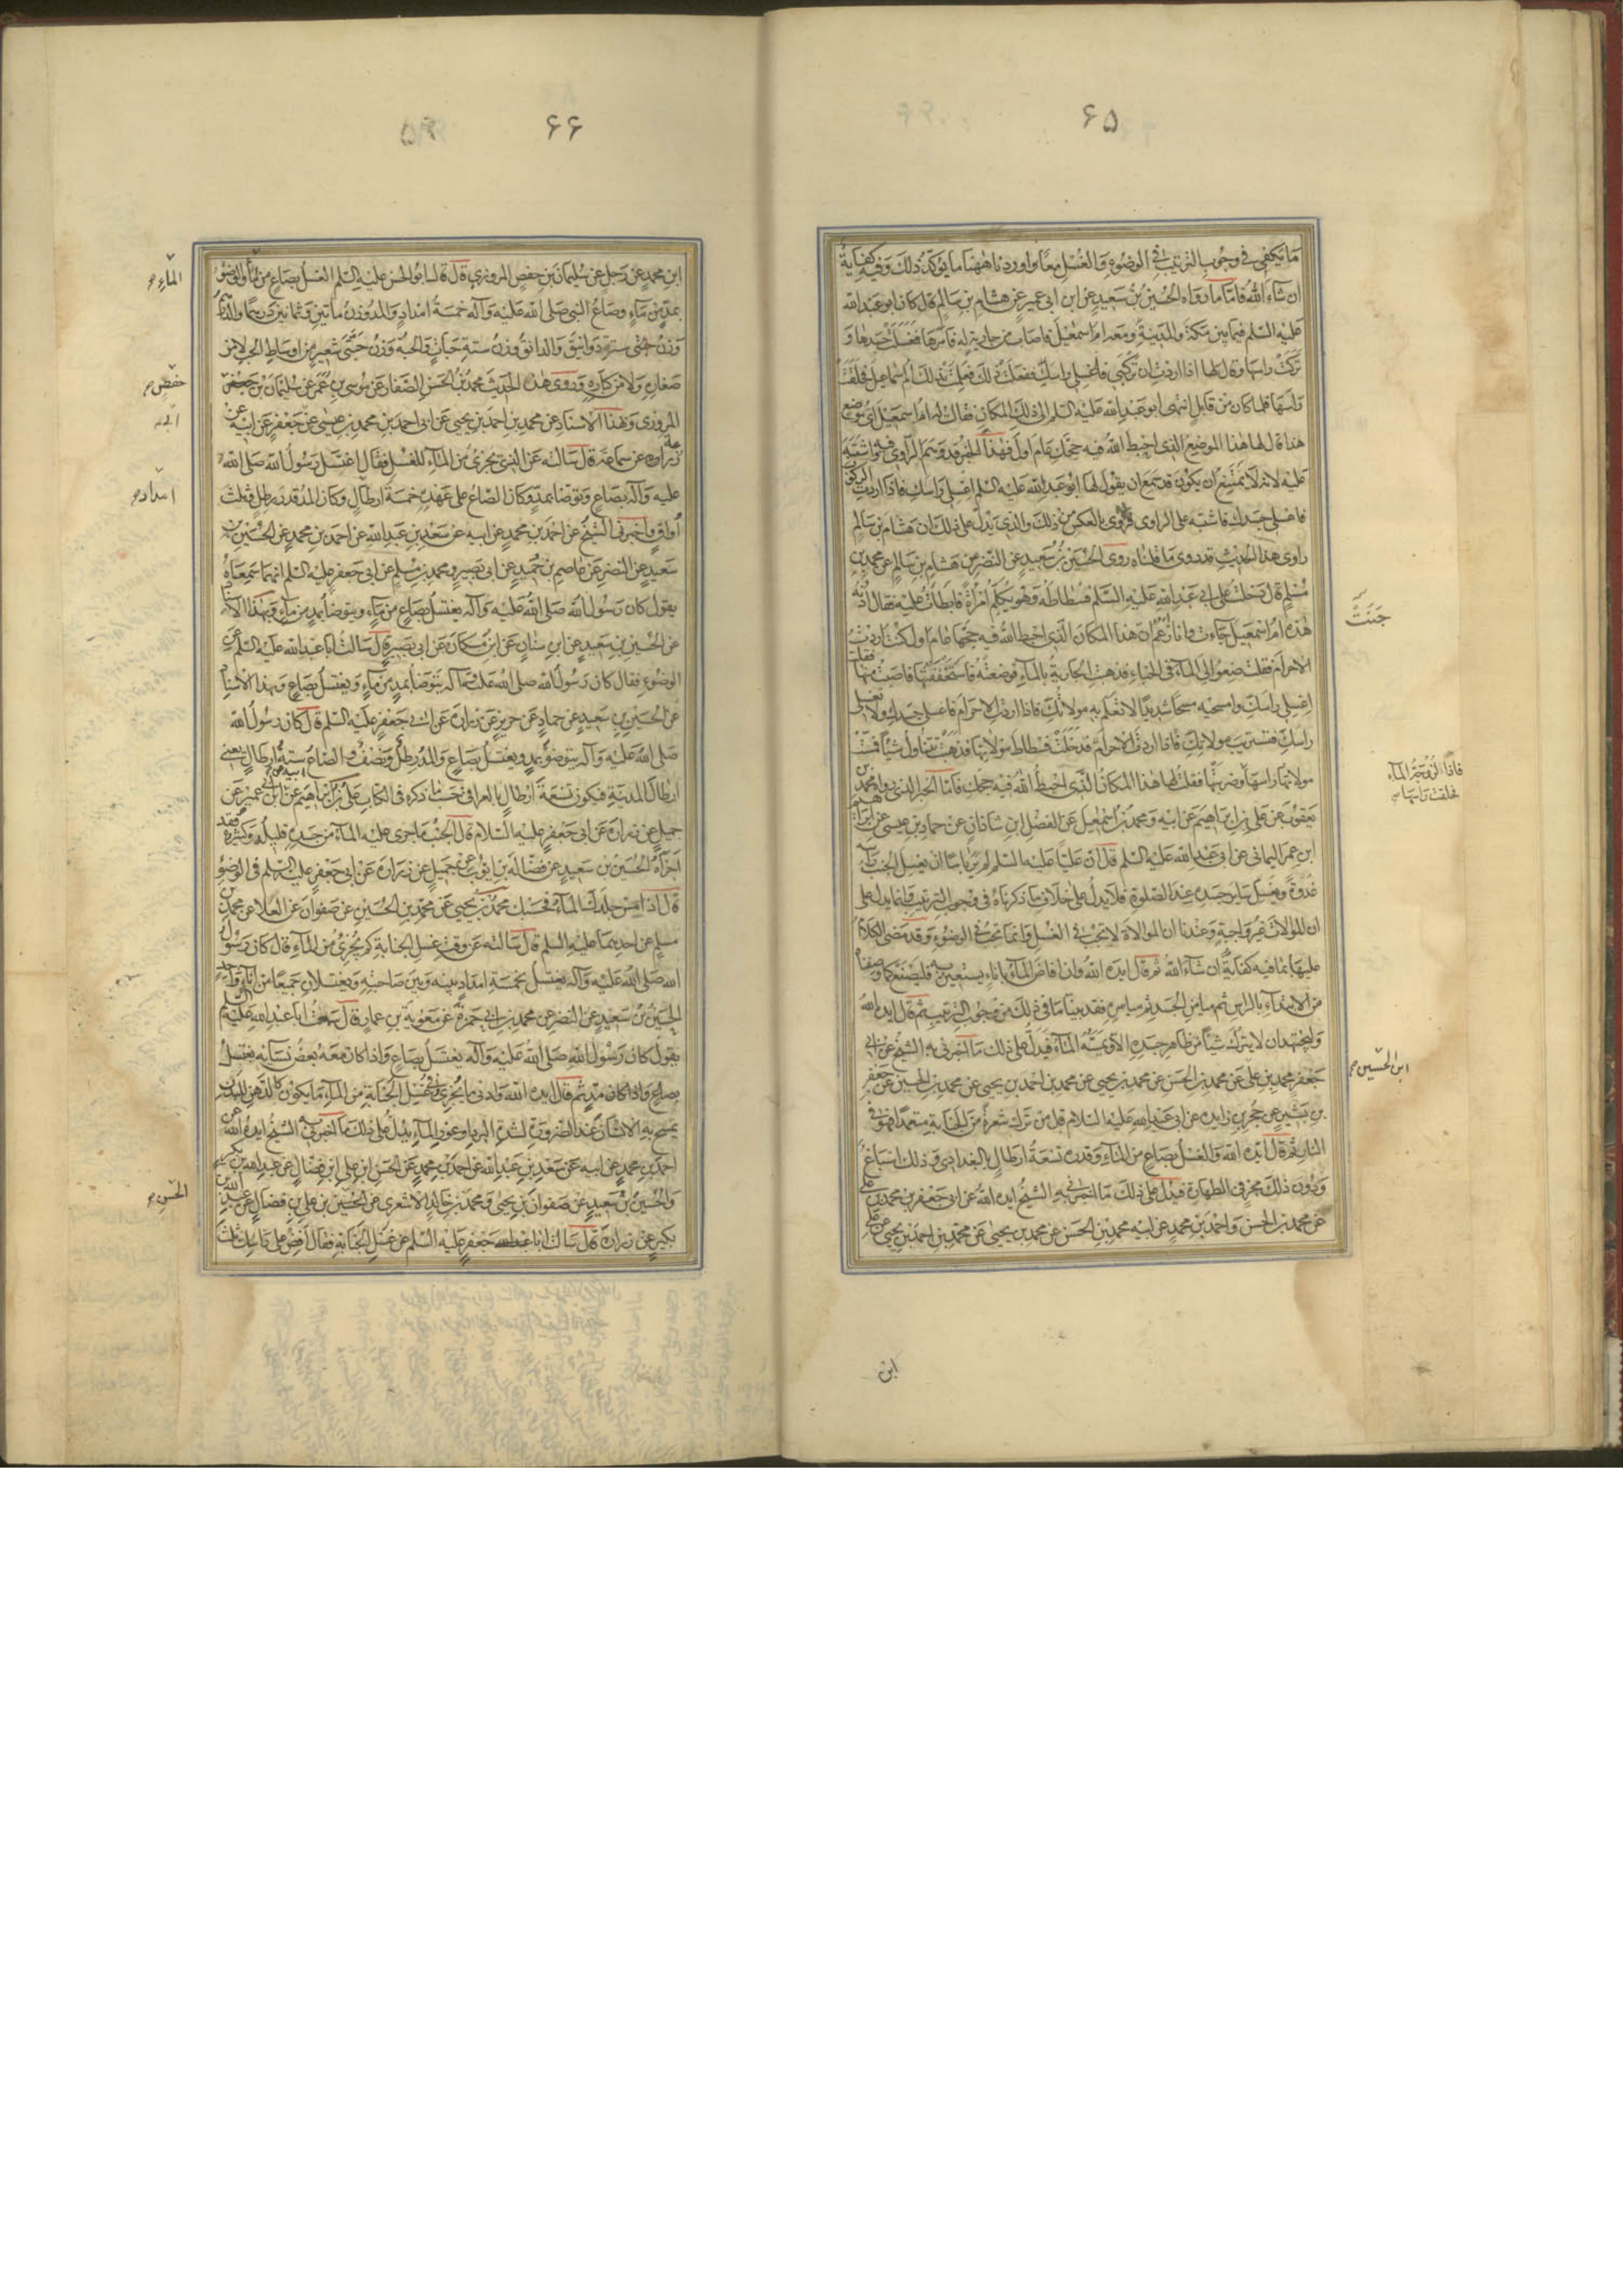 ۶۵
ما يكفى فى وجوب الترتيب فى الوضوء والغسل معا واوردنا ههنا ما يؤكد ذلك وفيه كفاية
ان شاء الله فاما ما رواه الحسين بن سعيد عن ابن ابى عمير عن هشام بن سالم قال كان ابو عبد الله
عليه السلم فيما بين مكة والمدينة ومعه ام اسمعيل فاصاب من جارية له فامرها فغسلت جسدها و
تركت راسها وقال لها اذا اردت ان تركبى فاغسلى راسك ففعلت ذلك فعلمت بذلك ام اسماعيل فحلقت
راسها فلما كان من قابل انتهى ابو عبد الله عليه السلم الى ذلك المكان فقالت له ام اسمعيل اى موضع
هذا قال لها هذا الموضع الذى احبط الله فيه حجك عام اول فهذا الخبر قد وهم الراوى فيه واشتبه
عليه لانه لا يمتنع ان يكون قد سمع ان يقول لها ابو عبد الله عليه السلم اغسلى راسك فاذا اردت الركوب
فاغسلى جسدك فاشتبه على الراوى فروى بالعكس من ذلك والذى يدل على ذلك ان هشام بن سالم
راوى هذا الحديث قد روى ما قلناه روى الحسين بن سعيد عن النضر عن هشام بن سالم عن محمد بن
مسلم قال دخلت على ابى عبد الله عليه السلم فسطاطه وهو يكلم امرأة فابطات عليه فقال ادنه
هذه ام اسمعيل جاءت وانا ازعم ان هذا المكان الذى احبط الله فيه حجها عام اول كنت اردت
الاحرام فقلت ضعوا الى الماء فى الخباء فذهبت الجارية بالماء فوضعته فاستخففتها فاصبت منها فقلت
اغسلى راسك وامسحيه مسحا شديدا لا تعلم به مولاتك فاذا اردت الاحرام فاغسلى جسدك ولا تغسلى
راسك فتستريب مولاتك فاذا اردت الاحرام فدخلت فسطاط مولاتها فذهبت تتناول شيئا فمست
مولاتها راسها وضربتها فقلت لها هذا المكان الذى احبط الله فيه حجك فاما الخبر الذى رواه محمد بن
يعقوب عن على بن ابراهيم عن ابيه ومحمد بن اسمعيل عن الفضل ابن شاذان عن حماد بن عيسى عن ابراهيم
ابن عمر اليمانى عن ابى عبد الله عليه السلم قال ان عليا عليه السلم لم ير باسا ان يغسل الجنب راسه
غدوة ويغسل ساير جسده عند الصلوة فلا يدل على خلاف ما ذكرناه فى وجوب الترتيب وانما يدل على
ان الموالات غير واجبة وعندنا ان الموالاة لا تجب فى الغسل وانما تجب فى الوضوء وقد مضى الكلام
عليها بما فيه كفاية ان شاء الله ثم قال ايده الله وان افاض الماء باناء يستعين به فليصنع كما وصفناه
من الابتداء بالراس ثم ميامن الجسد ثم مياسره فقد بينا ما فى ذلك من وجوب الترتيب ثم قال ايده الله
وليجتهد ان لا يترك شيئا من ظاهر جسده الا ويمسه الماء فيدل على ذلك ما اخبرنى به الشيخ عن ابى
جعفر محمد بن على عن محمد بن الحسن عن محمد بن يحيى عن محمد بن احمد بن يحيى عن محمد بن الحسين عن جعفر
بن بشير عن حجر بن زايده عن ابى عبد الله عليه السلام قال من ترك شعرة من الجنابة متعمدا فهو فى
النار ثم قال ايده الله والغسل بصاع من الماء وقدره تسعة ارطال بالبغدادى وذلك اسباغ
ودون ذلك مجزى فى الطهارة فيدل على ذلك ما اخبرنى به الشيخ ايده الله عن ابى جعفر بن محمد بن على
عن محمد بن الحسن واحمد بن محمد عن ابيه محمد بن الحسن عن محمد بن يحيى عن محمد بن احمد بن يحيى عن على
جنبت
فاذا لزوجة الماء
خلقت راسها
ابن الحسين
ابن
۶۶
ابن محمد عن رجل عن سليمان بن حفص المروزى قال قال ابو الحسن عليه السلم الغسل بصاع من ماء والوضوء
بمد من ماء وصاع النبى صلى الله عليه وآله خمسة امداد والمد وزن مأتين وثمانين درهما والدرهم
وزن ستة دوانيق والدانق وزن ستة حبات والحبة وزن حبتى شعير من اوساط الحب لا من
صغاره ولا من كباره وروى هذا الحديث محمد بن الحسن الصفار عن موسى بن عمر عن سليمان بن جعفر
المروزى وبهذا الاسناد عن محمد بن احمد بن يحيى عن ابى احمد بن محمد بن عيسى عن جعفر عن ابيه عن
زراره عن سماعة قال سالته عن الذى يجزى من الماء للغسل فقال اغتسل رسول الله صلى الله
عليه وآله بصاع وتوضا بمد وكان الصاع على عهده خمسة ارطال وكان المد قدر رطل وثلث
أواق واخبرنى الشيخ عن احمد بن محمد عن ابيه عن سعد بن عبد الله عن احمد بن محمد عن الحسين بن
سعيد عن النضر عن عاصم بن حميد عن ابى بصير ومحمد بن مسلم عن ابى جعفر عليه السلم انهما سمعاه
يقول كان رسول الله صلى الله عليه وآله يغتسل بصاع من ماء ويتوضا بمد من ماء وبهذا الاسناد
عن الحسين بن سعيد عن ابن سنان عن ابن مسكان عن ابى بصير قال سالت ابا عبد الله عليه السلم عن
الوضوء فقال كان رسول الله صلى الله عليه وآله يتوضا بمد من ماء ويغتسل بصاع وبهذا الاسناد
عن الحسين بن سعيد عن حماد عن حريز عن زرارة عن ابى جعفر عليه السلم قال كان رسول الله
صلى الله عليه وآله يتوضؤ بمد ويغتسل بصاع والمد رطل ونصف والصاع ستة ارطال يعنى
ارطال المدينة فيكون تسعة ارطال بالعراقى حسب ما ذكره فى الكتاب على بن ابراهيم عن ابيه عن ابن ابى عمير عن
جميل عن زرارة عن ابى جعفر عليه السلام قال الجنب ما جرى عليه الماء من جسده قليله وكثيره فقد
اجزأه الحسين بن سعيد عن فضالة بن ايوب عن جميل عن زرارة عن ابى جعفر عليه السلم فى الوضوء
قال اذا مس جلدك الماء فحسبك محمد بن يحيى عن محمد بن الحسين عن صفوان عن العلا عن محمد بن
مسلم عن احدهما عليه السلم قال سالته عن وقت غسل الجنابة كم يجزى من الماء قال كان رسول
الله صلى الله عليه وآله يغتسل بخمسة امداد بينه وبين صاحبته ويغتسلان جميعا من اناء واحد
الحسين بن سعيد عن النضر عن محمد بن ابى حمزة عن معوية بن عمار قال سمعت ابا عبد الله عليه السلم
يقول كان رسول الله صلى الله عليه وآله يغتسل بصاع واذا كان معه بعض نسائه يغتسل
بصاع واذا كان مد ثم قال ايده الله وادنى ما يجزى فى غسل الجنابة من الماء ما يكون كالدهن للبدن
يمسح به الانسان عند الضرورة لشدة البرد او عوز الماء يدل على ذلك ما اخبرنى به الشيخ ايده الله عن
احمد بن محمد عن ابيه عن سعد بن عبد الله عن احمد بن محمد عن الحسن ابن على ابن فضال عن عبد الله بن بكير
والحسين بن سعيد عن صفوان بن يحيى ومحمد بن خالد الاشعرى عن الحسين بن على بن فضال عن عبد الله بن
بكير عن زرارة قال سالت ابا جعفر عليه السلم عن غسل الجنابة فقال افض على راسك ثلث
الماء
حفص
امداد
الحسن